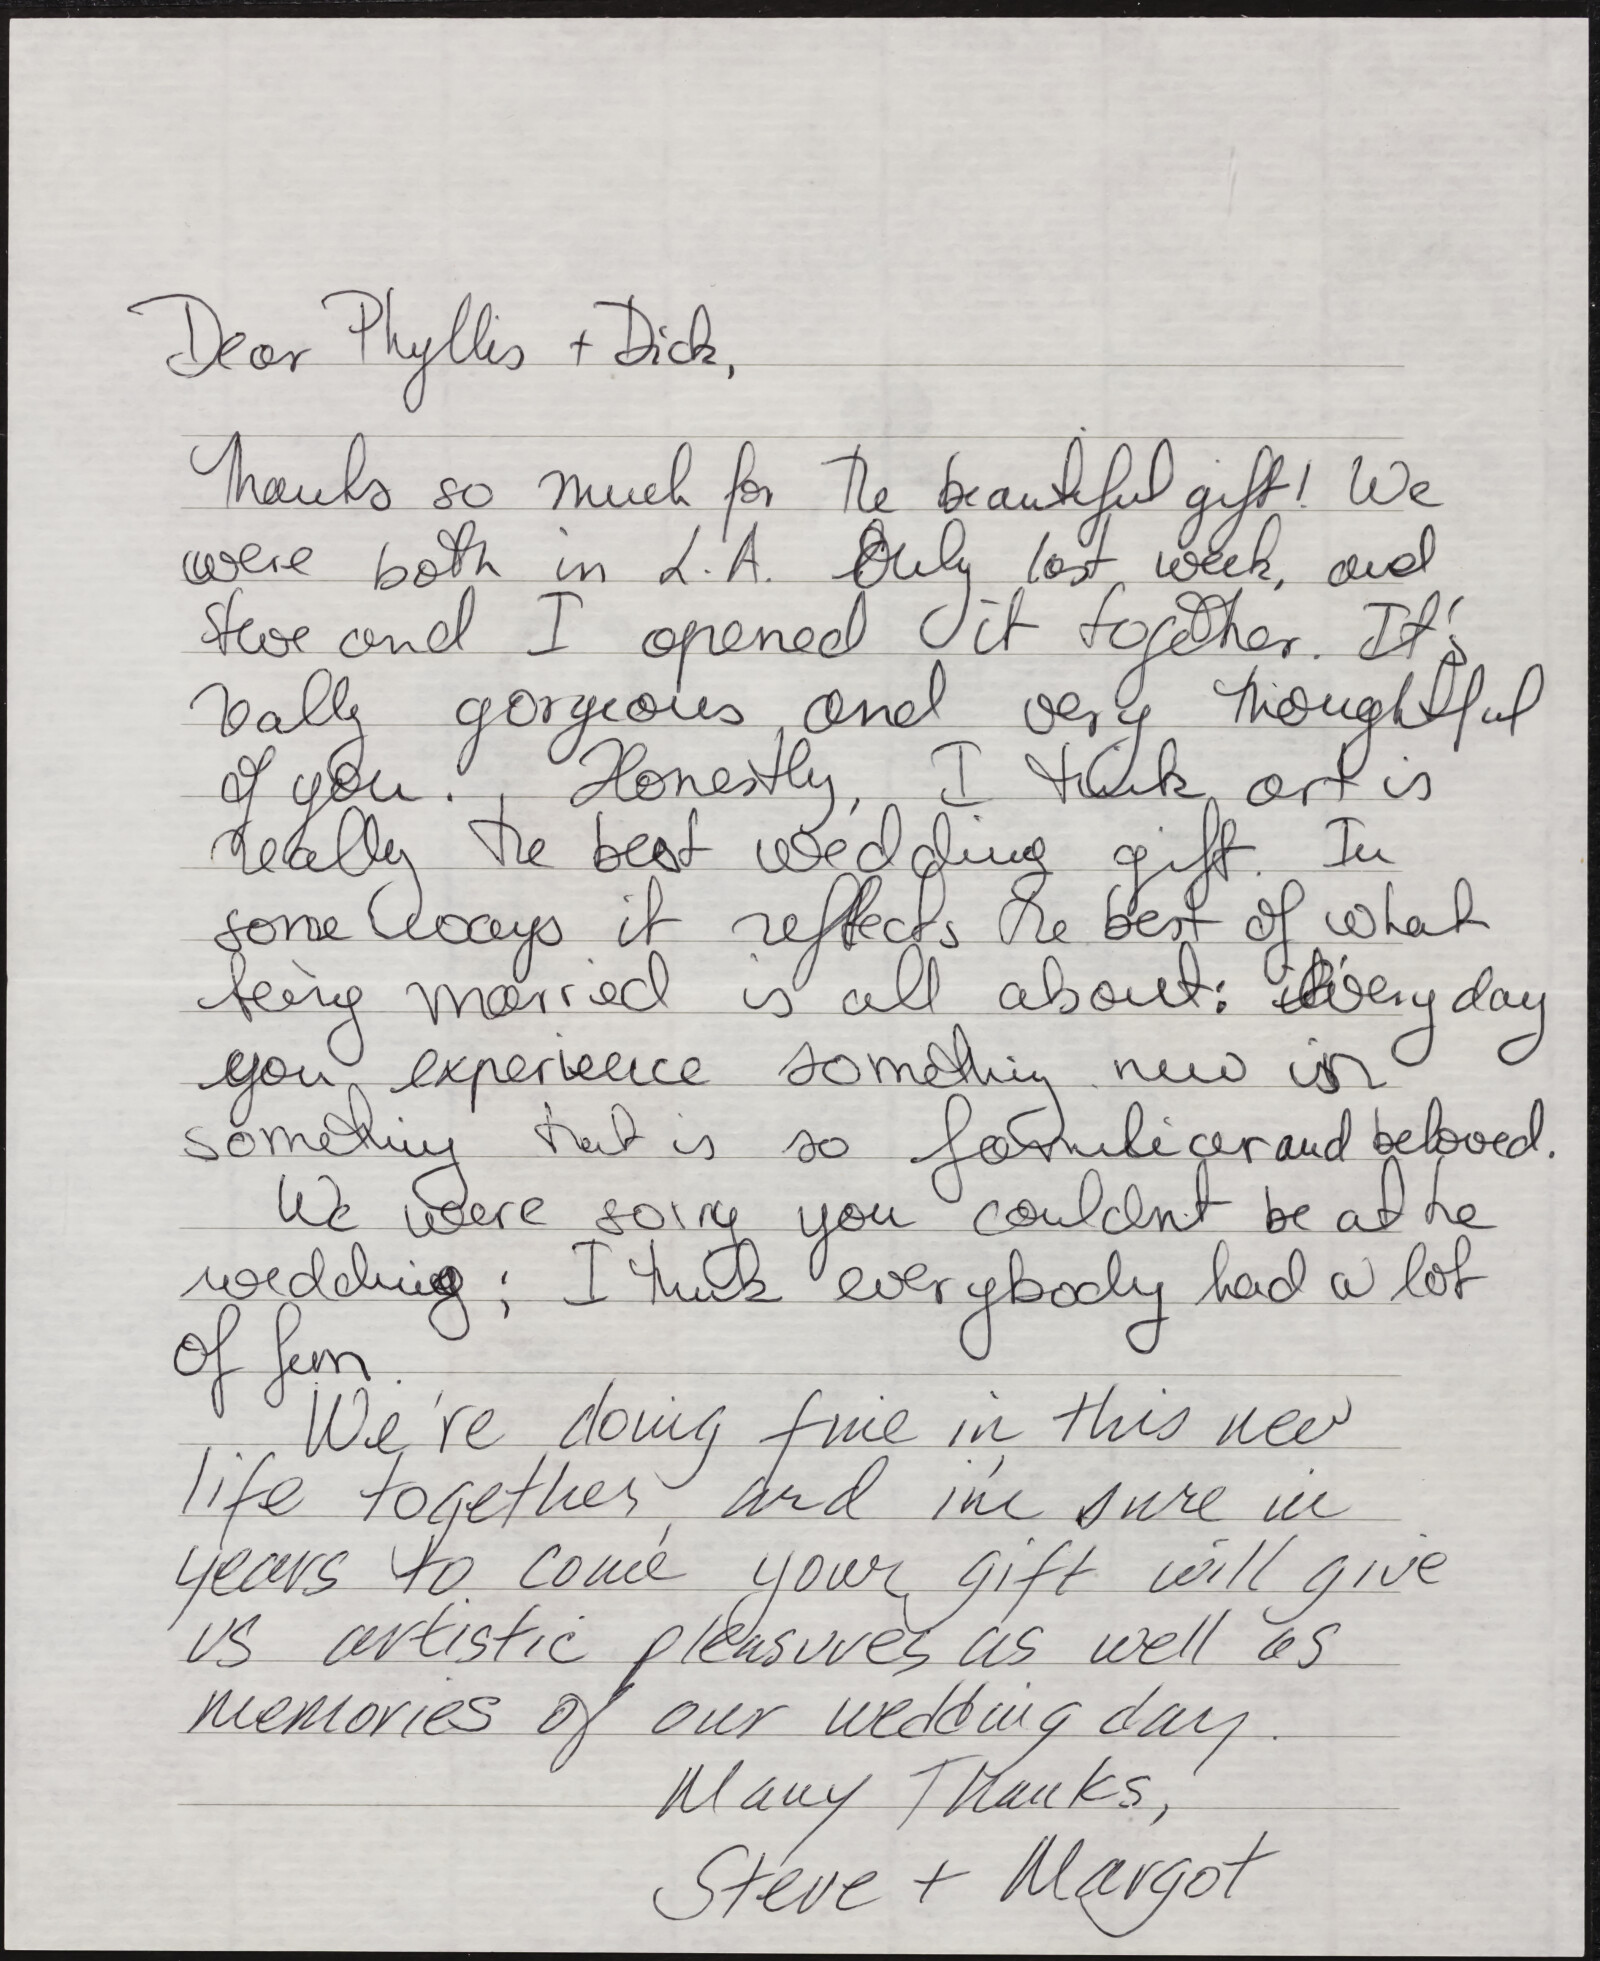 Dear Phyllis + Dick,
Thanks so much for the beautiful gift! We
were both in L.A. Only last week, and
Steve and I opened it together. It's
really gorgeous and very thoughtful
of you. Honestly, I think art is
really the best wedding gift. In
some ways it reflects the best of what
being married is all about: every day
you experience something new in
something that is so familiar and beloved.
We were sorry you couldn't be at the
wedding; I think everybody had a lot
of fun.
We're doing fine in this new
life together, and i'm sure in
years to come your gift will give
us artistic pleasures as well as
memories of our wedding day.
Many Thanks,
Steve + Margot